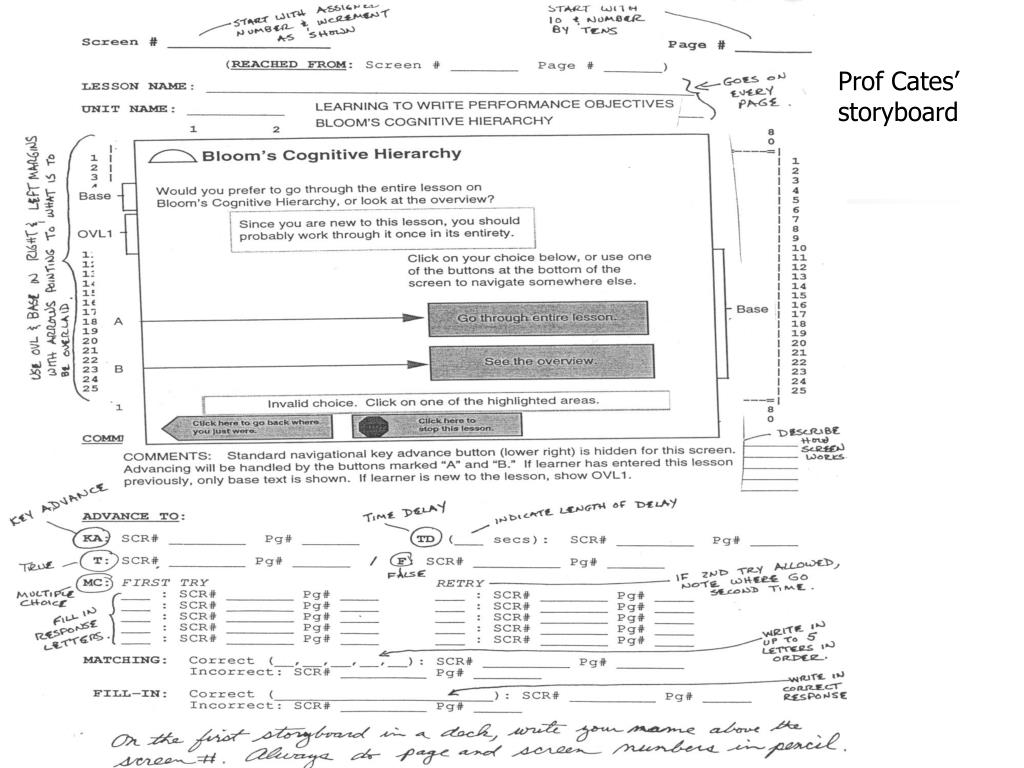 START WITH ASSIGNED
NUMBER & INCREMENT
AS SHOWN
START WITH
10 & NUMBER
BY TENS
Screen # Page #
(REACHED FROM: Screen # Page # )
LESSON NAME:
GOES ON
EVERY
PAGE.
UNIT NAME:
LEARNING TO WRITE PERFORMANCE OBJECTIVES
BLOOM'S COGNITIVE HIERARCHY
Prof Cates'
storyboard
1 2
8
0
USE OVL & BASE IN RIGHT & LEFT MARGINS
WITH ARROWS POINTING TO WHAT IS TO
BE OVERLAID.
1
2
3
Base
OVL1
16
17
18
19
20
21
22
23
24
25
1
A
B
Bloom's Cognitive Hierarchy
Would you prefer to go through the entire lesson on
Bloom's Cognitive Hierarchy, or look at the overview?
Since you are new to this lesson, you should
probably work through it once in its entirety.
Click on your choice below, or use one
of the buttons at the bottom of the
screen to navigate somewhere else.
Go through entire lesson.
See the overview.
Invalid choice. Click on one of the highlighted areas.
Click here to go back where
you just were.
Click here to
stop this lesson.
Base
1
2
3
4
5
6
7
8
9
10
11
12
13
14
15
16
17
18
19
20
21
22
23
24
25
8
0
COMM
DESCRIBE
HOW
SCREEN
WORKS
COMMENTS: Standard navigational key advance button (lower right) is hidden for this screen.
Advancing will be handled by the buttons marked "A" and "B." If learner has entered this lesson
previously, only base text is shown. If learner is new to the lesson, show OVL1.
KEY ADVANCE
ADVANCE TO:
TIME DELAY
INDICATE LENGTH OF DELAY
KA: SCR# Pg# TD ( secs): SCR# Pg#
TRUE T: SCR# Pg# / F: SCR# Pg#
FALSE
MC: FIRST TRY RETRY
IF 2ND TRY ALLOWED,
NOTE WHERE GO
SECOND TIME.
MULTIPLE
CHOICE
FILL IN
RESPONSE
LETTERS.
: SCR# Pg# : SCR# Pg#
: SCR# Pg# : SCR# Pg#
: SCR# Pg# : SCR# Pg#
: SCR# Pg# : SCR# Pg#
: SCR# Pg# : SCR# Pg#
WRITE IN
UP TO 5
LETTERS IN
ORDER.
MATCHING: Correct ( , , , , ): SCR# Pg#
Incorrect: SCR# Pg#
WRITE IN
CORRECT
RESPONSE
FILL-IN: Correct ( ): SCR# Pg#
Incorrect: SCR# Pg#
On the first storyboard in a deck, write your name above the
screen #. Always do page and screen numbers in pencil.